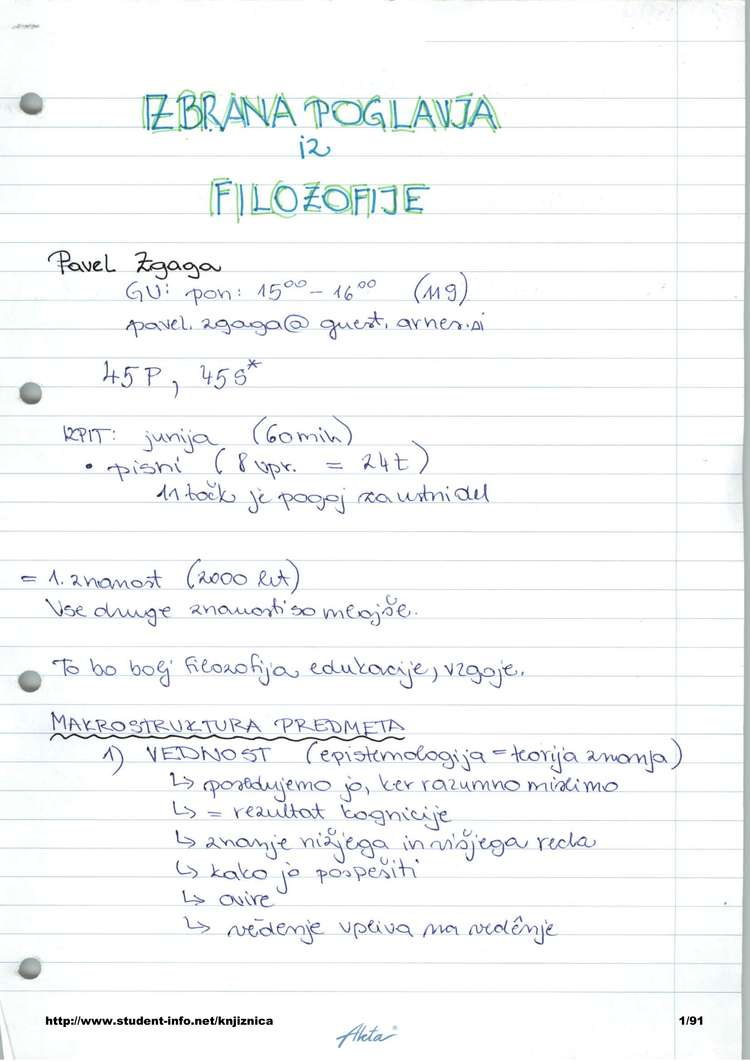 IZBRANA POGLAVJA
iz
FILOZOFIJE
Pavel Zgaga
GU: pon: 15⁰⁰ – 16⁰⁰ (119)
pavel.zgaga@guest.arnes.si
45P, 45S*
IZPIT: junija (60min)
• pisni (8 vpr. = 24t)
11 točk je pogoj za ustni del
= 1. znanost (2000 let)
Vse druge znanosti so mlajše.
To bo bolj filozofija edukacije, vzgoje.
MAKROSTRUKTURA PREDMETA
1) VEDNOST (epistemologija = teorija znanja)
↳ posedujemo jo, ker razumno mislimo
↳ = rezultat kognicije
↳ znanje nižjega in višjega reda
↳ kako jo pospešiti
↳ ovire
↳ vēdenje vpliva na vedênje
http://www.student-info.net/knjiznica
1/91
Akta